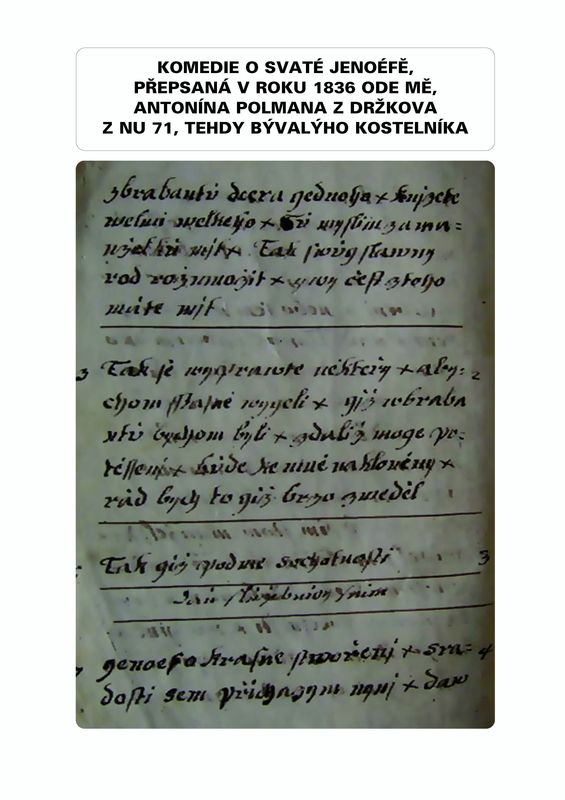 KOMEDIE O SVATÉ JENOÉFĚ,
PŘEPSANÁ V ROKU 1836 ODE MĚ,
ANTONÍNA POLMANA Z DRŽKOVA
Z NU 71, TEHDY BÝVALÝHO KOSTELNÍKA
zbrabantü dcera gednoho × knjzete
welmi welkeho × Tü myslim zama=
nželkü mjt × Tak swüg slawny
rod rozmnožit × čest zteho
máte mjt
3 Tak se wyprawte některy × aby= 2
chom sstasně wygeli × giž wbraba
ntü bychom byli × zdaliž moge po=
těssenj × büde ke mně nakloněny ×
rád bych to giž brzo zwěděl
Tak giž podme sochotnosti 3
Jdü slüžebnicy snim
genoefa krasne stwořenj × sra= 4
dosti sem přichazym nynj × daw